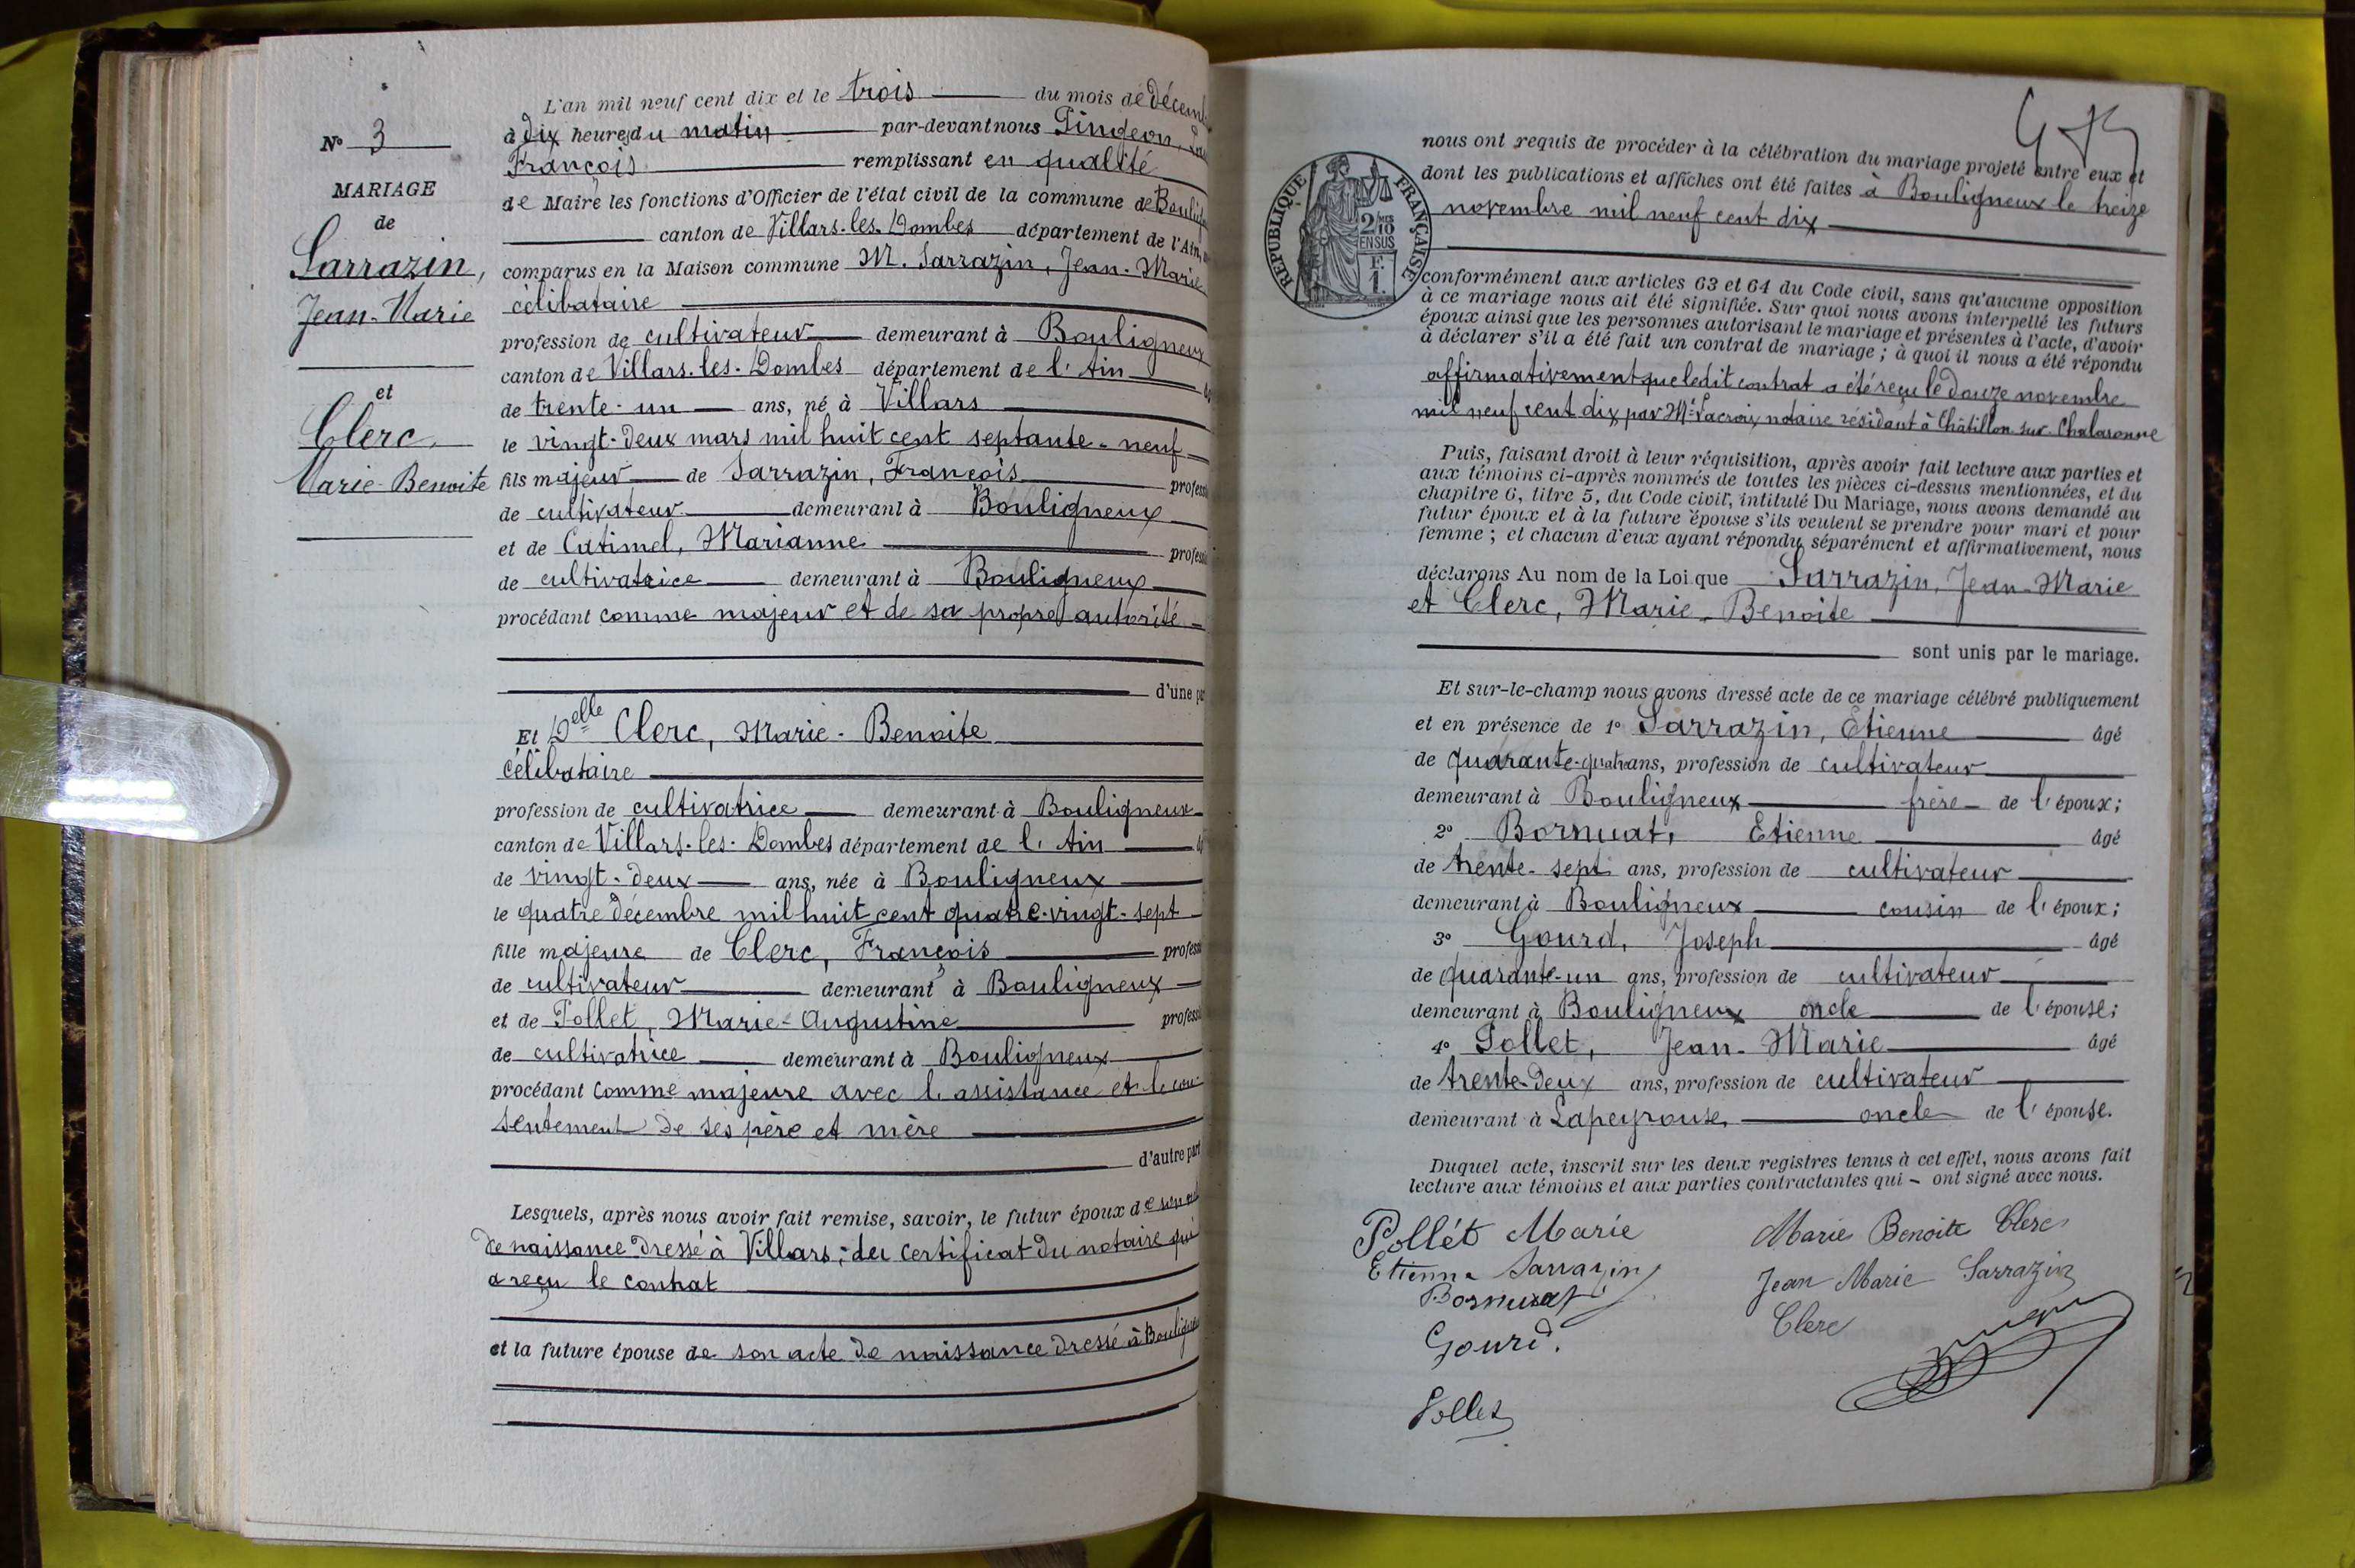 N° 3
MARIAGE
de
Sarrazin,
Jean-Marie
et
Clerc,
Marie-Benoite
L'an mil neuf cent dix et le trois du mois de décemb
à dix heures du matin par-devant nous Pingeon,
François remplissant en qualité
de Maire les fonctions d'Officier de l'état civil de la commune de Boulign
canton de Villars-les-Dombes département de l'Ain,
comparus en la Maison commune M. Sarrazin, Jean-Marie
célibataire
profession de cultivateur demeurant à Bouligneux
canton de Villars-les-Dombes département de l'Ain
de trente-un ans, né à Villars
le vingt-deux mars mil huit cent septante-neuf
fils majeur de Sarrazin, François profess
de cultivateur demeurant à Bouligneux
et de Catimel, Marianne profess
de cultivatrice demeurant à Bouligneux
procédant comme majeur et de sa propre autorité
d'une pa
Et Delle Clerc, Marie-Benoite
célibataire
profession de cultivatrice demeurant à Bouligneux
canton de Villars-les-Dombes département de l'Ain
de vingt-deux ans, née à Bouligneux
le quatre décembre mil huit cent quatre-vingt-sept
fille majeure de Clerc, François profess
de cultivateur demeurant à Bouligneux
et de Pollet, Marie-Augustine profess
de cultivatrice demeurant à Bouligneux
procédant comme majeure avec l'assistance et le con-
sentement de ses père et mère
d'autre part
Lesquels, après nous avoir fait remise, savoir, le futur époux de son
de naissance dressé à Villars; du certificat du notaire qui
a reçu le contrat
et la future épouse de son acte de naissance dressé à Bouligneu
RÉPUBLIQUE FRANÇAISE
2/10 MES
EN SUS
F.
1.
nous ont requis de procéder à la célébration du mariage projeté entre eux et
dont les publications et affiches ont été faites à Bouligneux le treize
novembre mil neuf cent dix
conformément aux articles 63 et 64 du Code civil, sans qu'aucune opposition
à ce mariage nous ait été signifiée. Sur quoi nous avons interpellé les futurs
époux ainsi que les personnes autorisant le mariage et présentes à l'acte, d'avoir
à déclarer s'il a été fait un contrat de mariage; à quoi il nous a été répondu
affirmativement que ledit contrat a été reçu le douze novembre
mil neuf cent dix, par Me Lacroix notaire résidant à Châtillon-sur-Chalaronne
Puis, faisant droit à leur réquisition, après avoir fait lecture aux parties et
aux témoins ci-après nommés de toutes les pièces ci-dessus mentionnées, et du
chapitre 6, titre 5, du Code civil, intitulé Du Mariage, nous avons demandé au
futur époux et à la future épouse s'ils veulent se prendre pour mari et pour
femme; et chacun d'eux ayant répondu séparément et affirmativement, nous
déclarons Au nom de la Loi que Sarrazin, Jean-Marie
et Clerc, Marie-Benoite
sont unis par le mariage.
Et sur-le-champ nous avons dressé acte de ce mariage célébré publiquement
et en présence de 1° Sarrazin, Etienne âgé
de quarante-quatre ans, profession de cultivateur
demeurant à Bouligneux frère de l'époux;
2° Bornuat, Etienne âgé
de trente-sept ans, profession de cultivateur
demeurant à Bouligneux cousin de l'époux;
3° Gourd, Joseph âgé
de quarante-un ans, profession de cultivateur
demeurant à Bouligneux oncle de l'épouse;
4° Pollet, Jean-Marie âgé
de trente-deux ans, profession de cultivateur
demeurant à Lapeyrouse, oncle de l'épouse.
Duquel acte, inscrit sur les deux registres tenus à cet effet, nous avons fait
lecture aux témoins et aux parties contractantes qui - ont signé avec nous.
Pollét Marie Marie Benoite Clerc
Etienne Sarrazin Jean Marie Sarrazin
Bornuat Clerc
Gourd.
Pollet